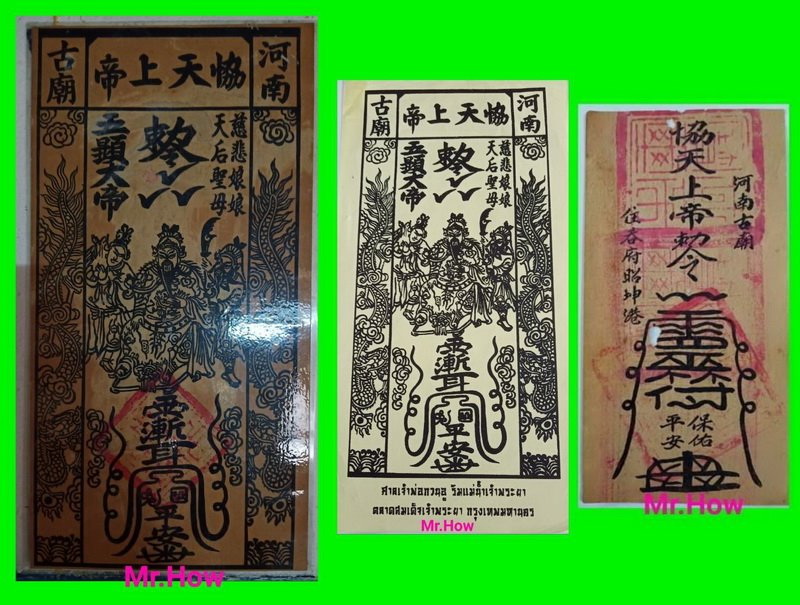 河南
恊天上帝
古廟
慈悲娘娘
天后聖母
敕令
五顯大帝
平安
Mr.How
河南
恊天上帝
古廟
慈悲娘娘
天后聖母
敕令
五顯大帝
平安
ศาลเจ้าพ่อกวนอู ริมแม่น้ำเจ้าพระยา
ตลาดสมเด็จเจ้าพระยา กรุงเทพมหานคร
Mr.How
河南古廟
協天上帝敕令
保佑
平安
Mr.How